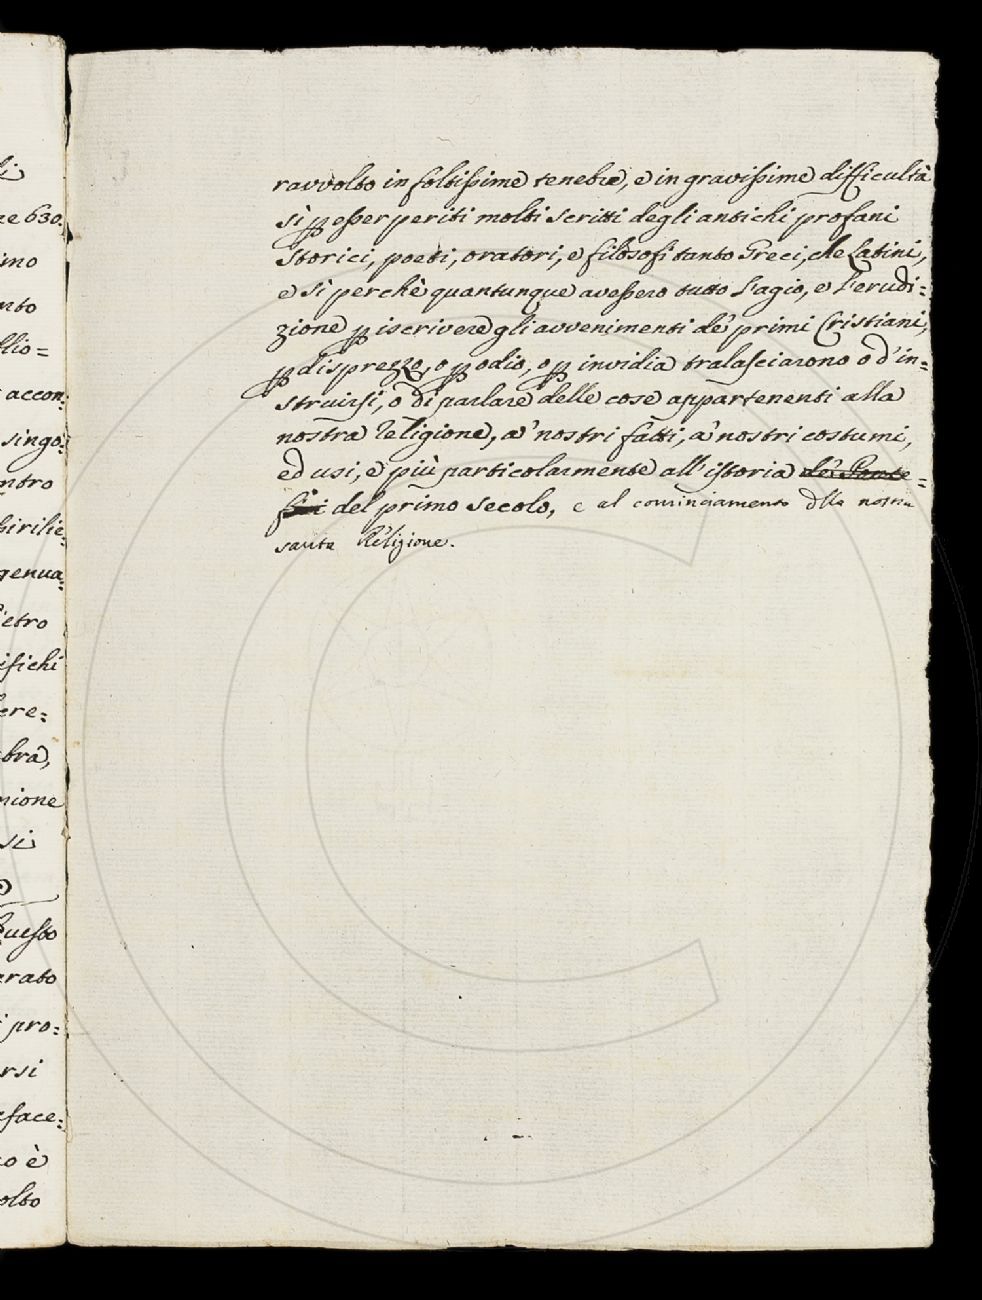 li
ne 630.
imo
nto
llio=
accon=
singo=
ntro
sirilie=
genua=
ietro
ifichi
ere=
bra,
nione
si
Questo
rato
pro=
rsi
face=
co è
olto
ravvolto in foltissime tenebre, e in gravissime difficultà
sì p esser periti molti scritti degli antichi profani
Storici, poeti, oratori, e filosofi tanto Greci, che Latini,
e sì perchè quantunque avessero tutto l'agio, e l'erudi=
zione p iscrivere gli avvenimenti de' primi Cristiani,
p disprezzo, o p odio, o p invidia tralasciarono o d'in=
struirsi, o di parlare delle cose appartenenti alla
nostra Religione, a' nostri fatti, a' nostri costumi,
ed usi, e più particolarmente all'istoria de' Ponte=
fici del primo secolo, e al cominciamento dlla nostra
santa Religione.